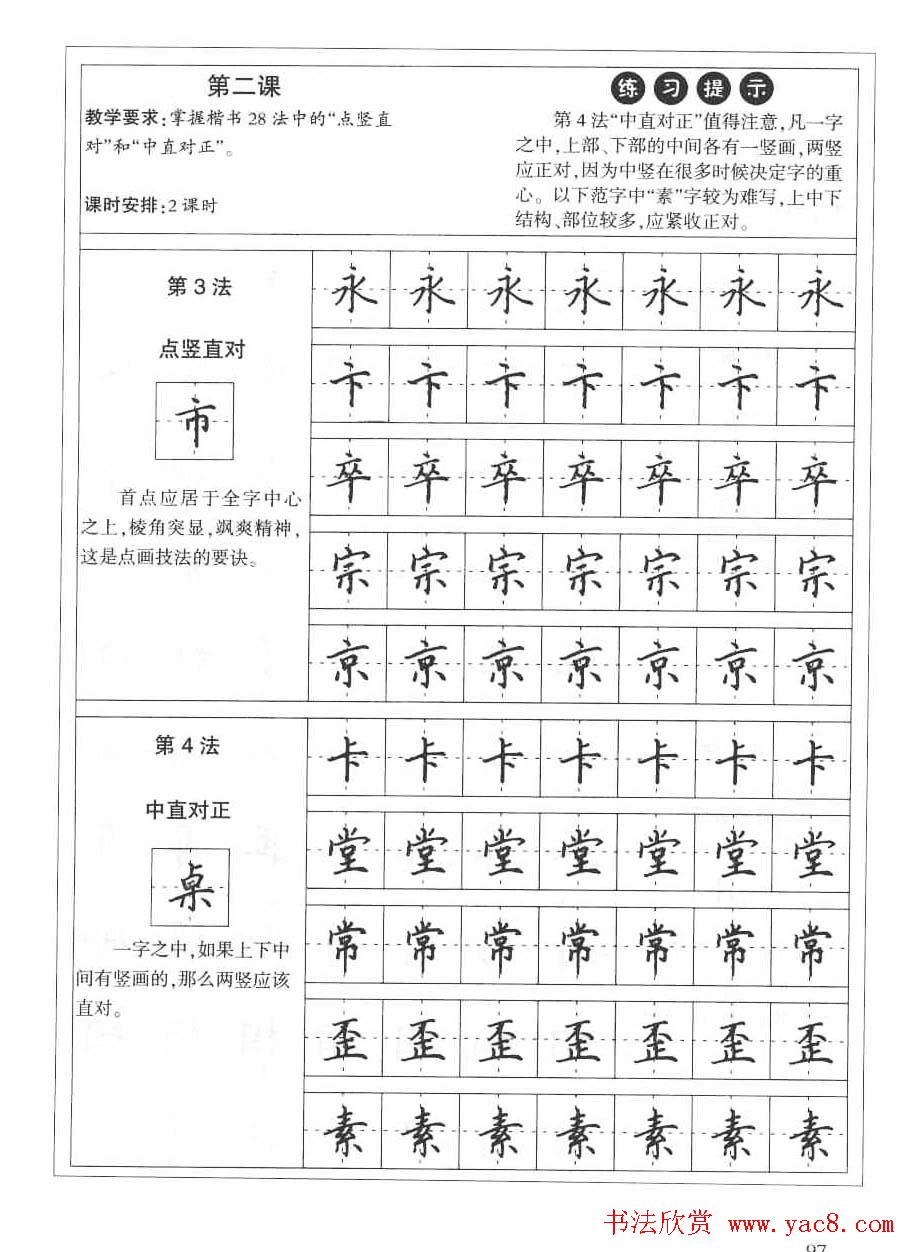 第二课
教学要求:掌握楷书28法中的“点竖直
对”和“中直对正”。
课时安排:2课时
练习提示
第4法“中直对正”值得注意,凡一字
之中,上部、下部的中间各有一竖画,两竖
应正对,因为中竖在很多时候决定字的重
心。以下范字中“素”字较为难写,上中下
结构、部位较多,应紧收正对。
第3法
点竖直对
市
首点应居于全字中心
之上,棱角突显,飒爽精神,
这是点画技法的要诀。
永永永永永永永
卞卞卞卞卞卞卞
卒卒卒卒卒卒卒
宗宗宗宗宗宗宗
京京京京京京京
第4法
中直对正
桌
一字之中,如果上下中
间有竖画的,那么两竖应该
直对。
卡卡卡卡卡卡卡
堂堂堂堂堂堂堂
常常常常常常常
歪歪歪歪歪歪歪
素素素素素素素
书法欣赏 www.yac8.com
97